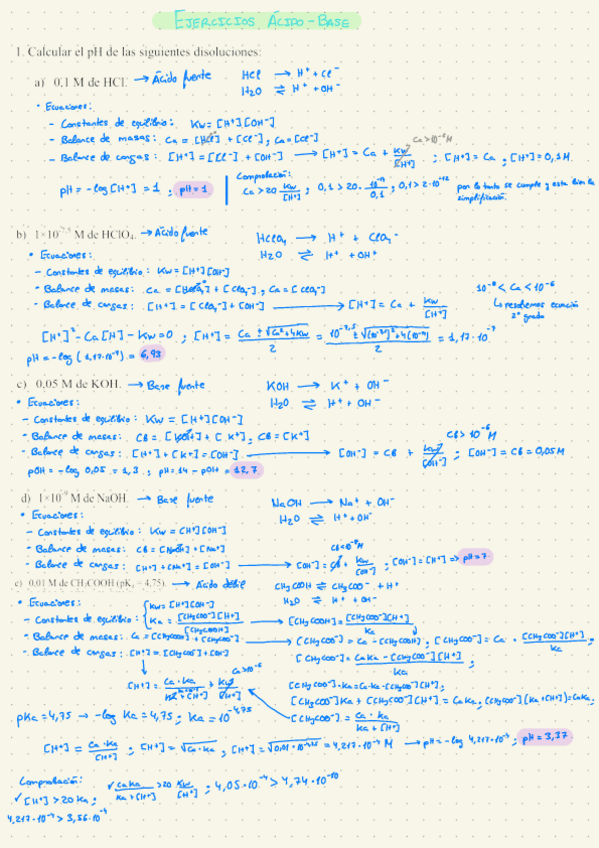 EJERCICIOS ÁCIDO-BASE
1. Calcular el pH de las siguientes disoluciones:
a) 0,1 M de HCl. → Ácido fuerte HCl → H⁺ + Cl⁻
H₂O ⇌ H⁺ + OH⁻
• Ecuaciones:
- Constantes de equilibrio: Kw = [H⁺][OH⁻]
- Balance de masas: Ca = [HCl] + [Cl⁻], Ca = [Cl⁻] Ca > 10⁻⁶ M
- Balance de cargas: [H⁺] = [Cl⁻] + [OH⁻] → [H⁺] = Ca + Kw/[H⁺] ; [H⁺] = Ca, [H⁺] = 0,1 M
pH = -log [H⁺] = 1 ; pH = 1
Comprobación:
Ca > 20 Kw/[H⁺] ; 0,1 > 20 · 10⁻¹⁴/0,1 ; 0,1 > 2·10⁻¹² por lo tanto se cumple y esta bien la simplificación.
b) 1×10⁻⁷·⁵ M de HClO₄. → Ácido fuerte HClO₄ → H⁺ + ClO₄⁻
H₂O ⇌ H⁺ + OH⁻
• Ecuaciones:
- Constantes de equilibrio: Kw = [H⁺][OH⁻]
- Balance de masas: Ca = [HClO₄] + [ClO₄⁻], Ca = [ClO₄⁻] 10⁻⁸ < Ca < 10⁻⁶
- Balance de cargas: [H⁺] = [ClO₄⁻] + [OH⁻] → [H⁺] = Ca + Kw/[H⁺] ↳ resolvemos ecuación 2º grado
[H⁺]² - Ca[H] - Kw = 0 ; [H⁺] = Ca ± √(Ca² + 4Kw)/2 = 10⁻⁷·⁵ ± √((10⁻⁷·⁵)² + 4(10⁻¹⁴))/2 = 1,17·10⁻⁷
pH = -log (1,17·10⁻⁷) = 6,93
c) 0,05 M de KOH. → Base fuerte KOH → K⁺ + OH⁻
H₂O ⇌ H⁺ + OH⁻
• Ecuaciones:
- Constantes de equilibrio: Kw = [H⁺][OH⁻]
- Balance de masas: CB = [KOH] + [K⁺], CB = [K⁺] CB > 10⁻⁶ M
- Balance de cargas: [H⁺] + [K⁺] = [OH⁻] → [OH⁻] = CB + Kw/[OH⁻] ; [OH⁻] = CB = 0,05 M
pOH = -log 0,05 = 1,3 ; pH = 14 - pOH = 12,7
d) 1×10⁻⁹ M de NaOH. → Base fuerte NaOH → Na⁺ + OH⁻
H₂O ⇌ H⁺ + OH⁻
• Ecuaciones:
- Constantes de equilibrio: Kw = [H⁺][OH⁻]
- Balance de masas: CB = [NaOH] + [Na⁺] CB < 10⁻⁸ M
- Balance de cargas: [H⁺] + [Na⁺] = [OH⁻] → [OH⁻] = CB + Kw/[OH⁻] ; [OH⁻] = [H⁺] => pH = 7
e) 0,01 M de CH₃COOH (pKₐ = 4,75). → Ácido débil CH₃COOH ⇌ CH₃COO⁻ + H⁺
H₂O ⇌ H⁺ + OH⁻
• Ecuaciones: Kw = [H⁺][OH⁻]
- Constantes de equilibrio: Ka = [CH₃COO⁻][H⁺]/[CH₃COOH] → [CH₃COOH] = [CH₃COO⁻][H⁺]/Ka
- Balance de masas: Ca = [CH₃COOH] + [CH₃COO⁻] → [CH₃COO⁻] = Ca - [CH₃COOH] ; [CH₃COO⁻] = Ca - [CH₃COO⁻][H⁺]/Ka ;
- Balance de cargas: [H⁺] = [CH₃COO⁻] + [OH⁻] [CH₃COO⁻] = CaKa - [CH₃COO⁻][H⁺]/Ka ;
Ca > 10⁻⁶
[H⁺] = Ca·Ka/Ka + [H⁺] + Kw/[H⁺] [CH₃COO⁻]·Ka = Ca·Ka - [CH₃COO⁻][H⁺] ;
[CH₃COO⁻]Ka + [CH₃COO⁻][H⁺] = CaKa ; [CH₃COO⁻](Ka + [H⁺]) = CaKa ;
pKa = 4,75 → -log Ka = 4,75 ; Ka = 10⁻⁴·⁷⁵ [CH₃COO⁻] = Ca·Ka/Ka + [H⁺]
[H⁺] = Ca·Ka/[H⁺] ; [H⁺] = √(Ca·Ka) ; [H⁺] = √(0,01·10⁻⁴·⁷⁵) = 4,217·10⁻⁴ M → pH = -log 4,217·10⁻⁴ ; pH = 3,37
Comprobación: ✓ CaKa/Ka + [H⁺] > 20 Kw/[H⁺] ; 4,05·10⁻⁴ > 4,74·10⁻¹⁰
✓ [H⁺] > 20 Ka ;
4,217·10⁻⁴ > 3,56·10⁻⁴